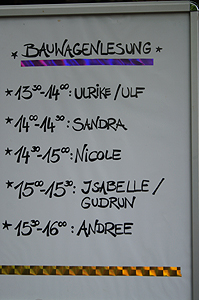 * BAUWAGENLESUNG *
* 13³⁰-14⁰⁰: ULRIKE/ULF
* 14⁰⁰-14³⁰: SANDRA
* 14³⁰-15⁰⁰: NICOLE
* 15⁰⁰-15³⁰: ISABELLE/
GUDRUN
* 15³⁰-16⁰⁰: ANDREE